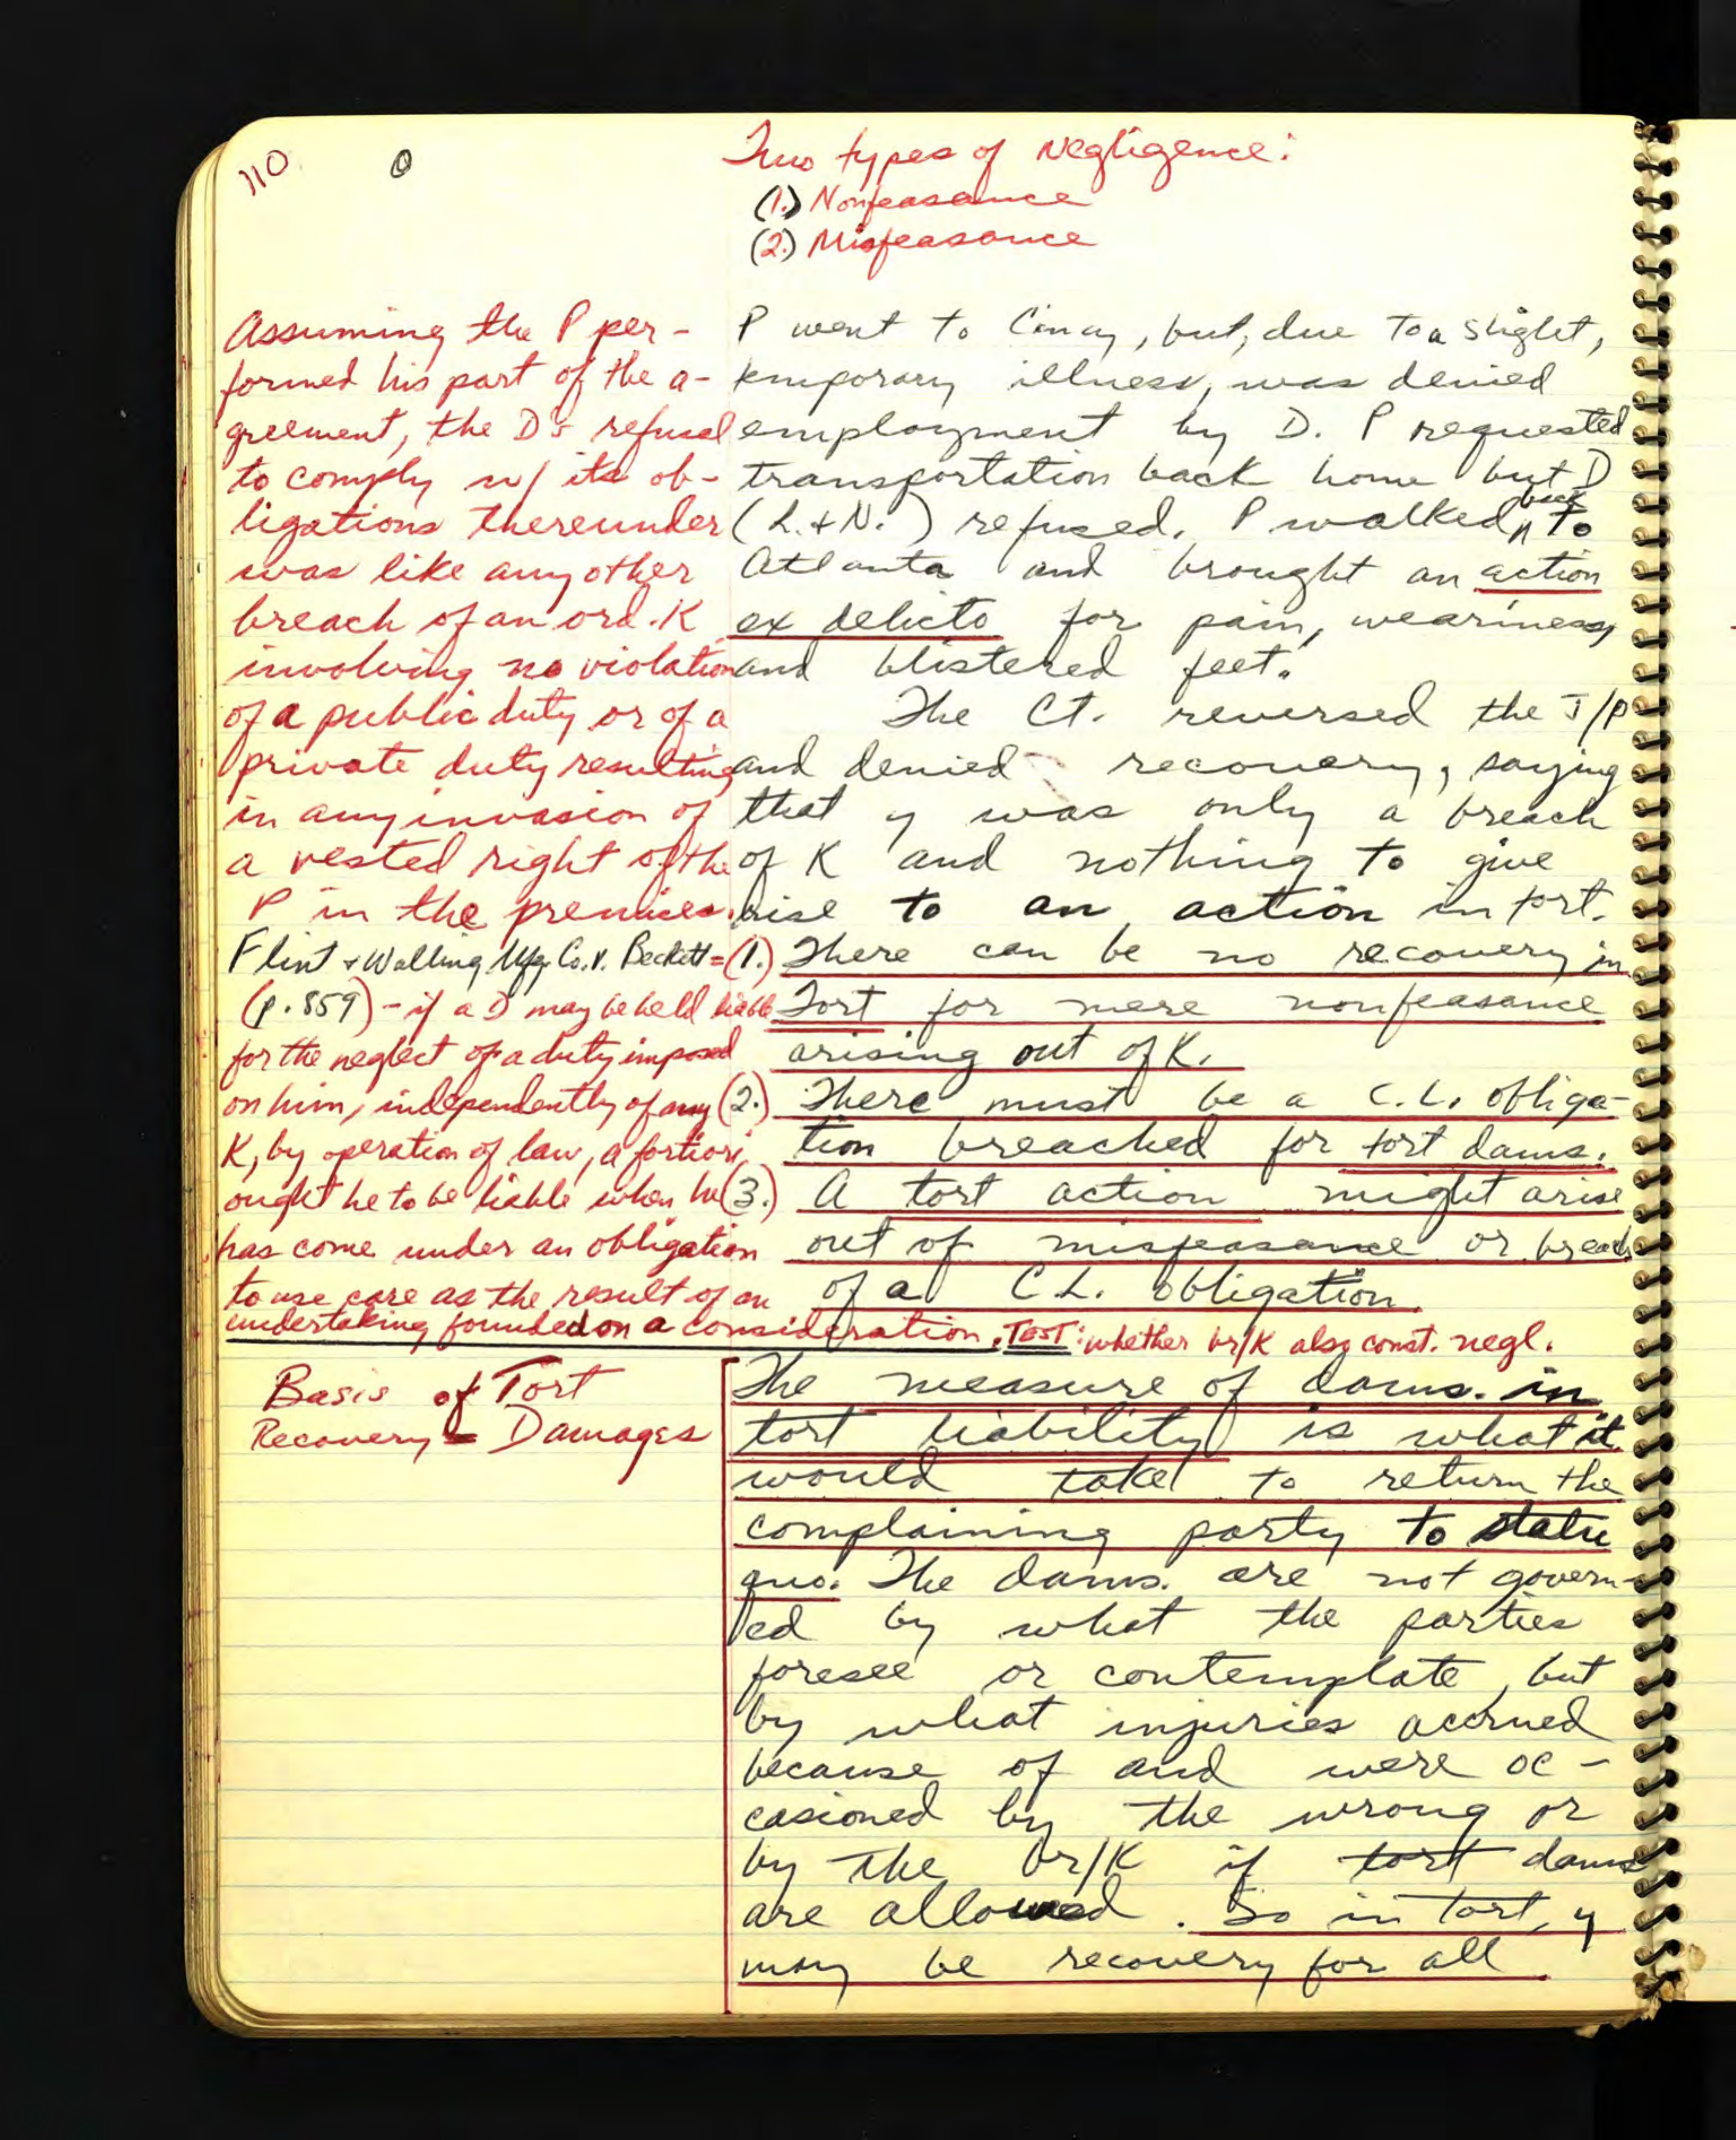 110
Two types of Negligence:
(1.) Nonfeasance
(2.) Misfeasance
Assuming the P per-
formed his part of the a-
greement, the D's refusal
to comply w/ its ob-
ligations thereunder
was like any other
breach of an ord. K
involving no violation
of a public duty or of a
private duty resulting
in any invasion of
a vested right of the
P in the premises.
Flint & Walling Mfg. Co. v. Beckett =
(p. 859) - if a D may be held liable
for the neglect of a duty imposed
on him, independently of any
K, by operation of law, a fortiori,
ought he to be liable when he
has come under an obligation
to use care as the result of an
undertaking founded on a consideration. TEST: whether br/K also const. negl.
P went to Cincy, but, due to a slight,
temporary illness, was denied
employment by D. P requested
transportation back home but D
(L. & N.) refused. P walked back to
Atlanta and brought an action
ex delicto for pain, weariness,
and blistered feet.
The Ct. reversed the J/P
and denied recovery, saying
that y was only a breach
of K and nothing to give
rise to an action in tort.
(1.) There can be no recovery in
Tort for mere nonfeasance
arising out of K.
(2.) There must be a C.L. obliga-
tion breached for tort dams.
(3.) A tort action might arise
out of misfeasance or breach
of a C.L. obligation.
Basis of Tort
Recovery = Damages
The measure of dams. in
tort liability is what it
would take to return the
complaining party to statu
quo. The dams. are not govern-
ed by what the parties
foresee or contemplate, but
by what injuries accrued
because of and were oc-
casioned by the wrong or
by the br/K if tort dams
are allowed. So in tort, y
may be recovery for all